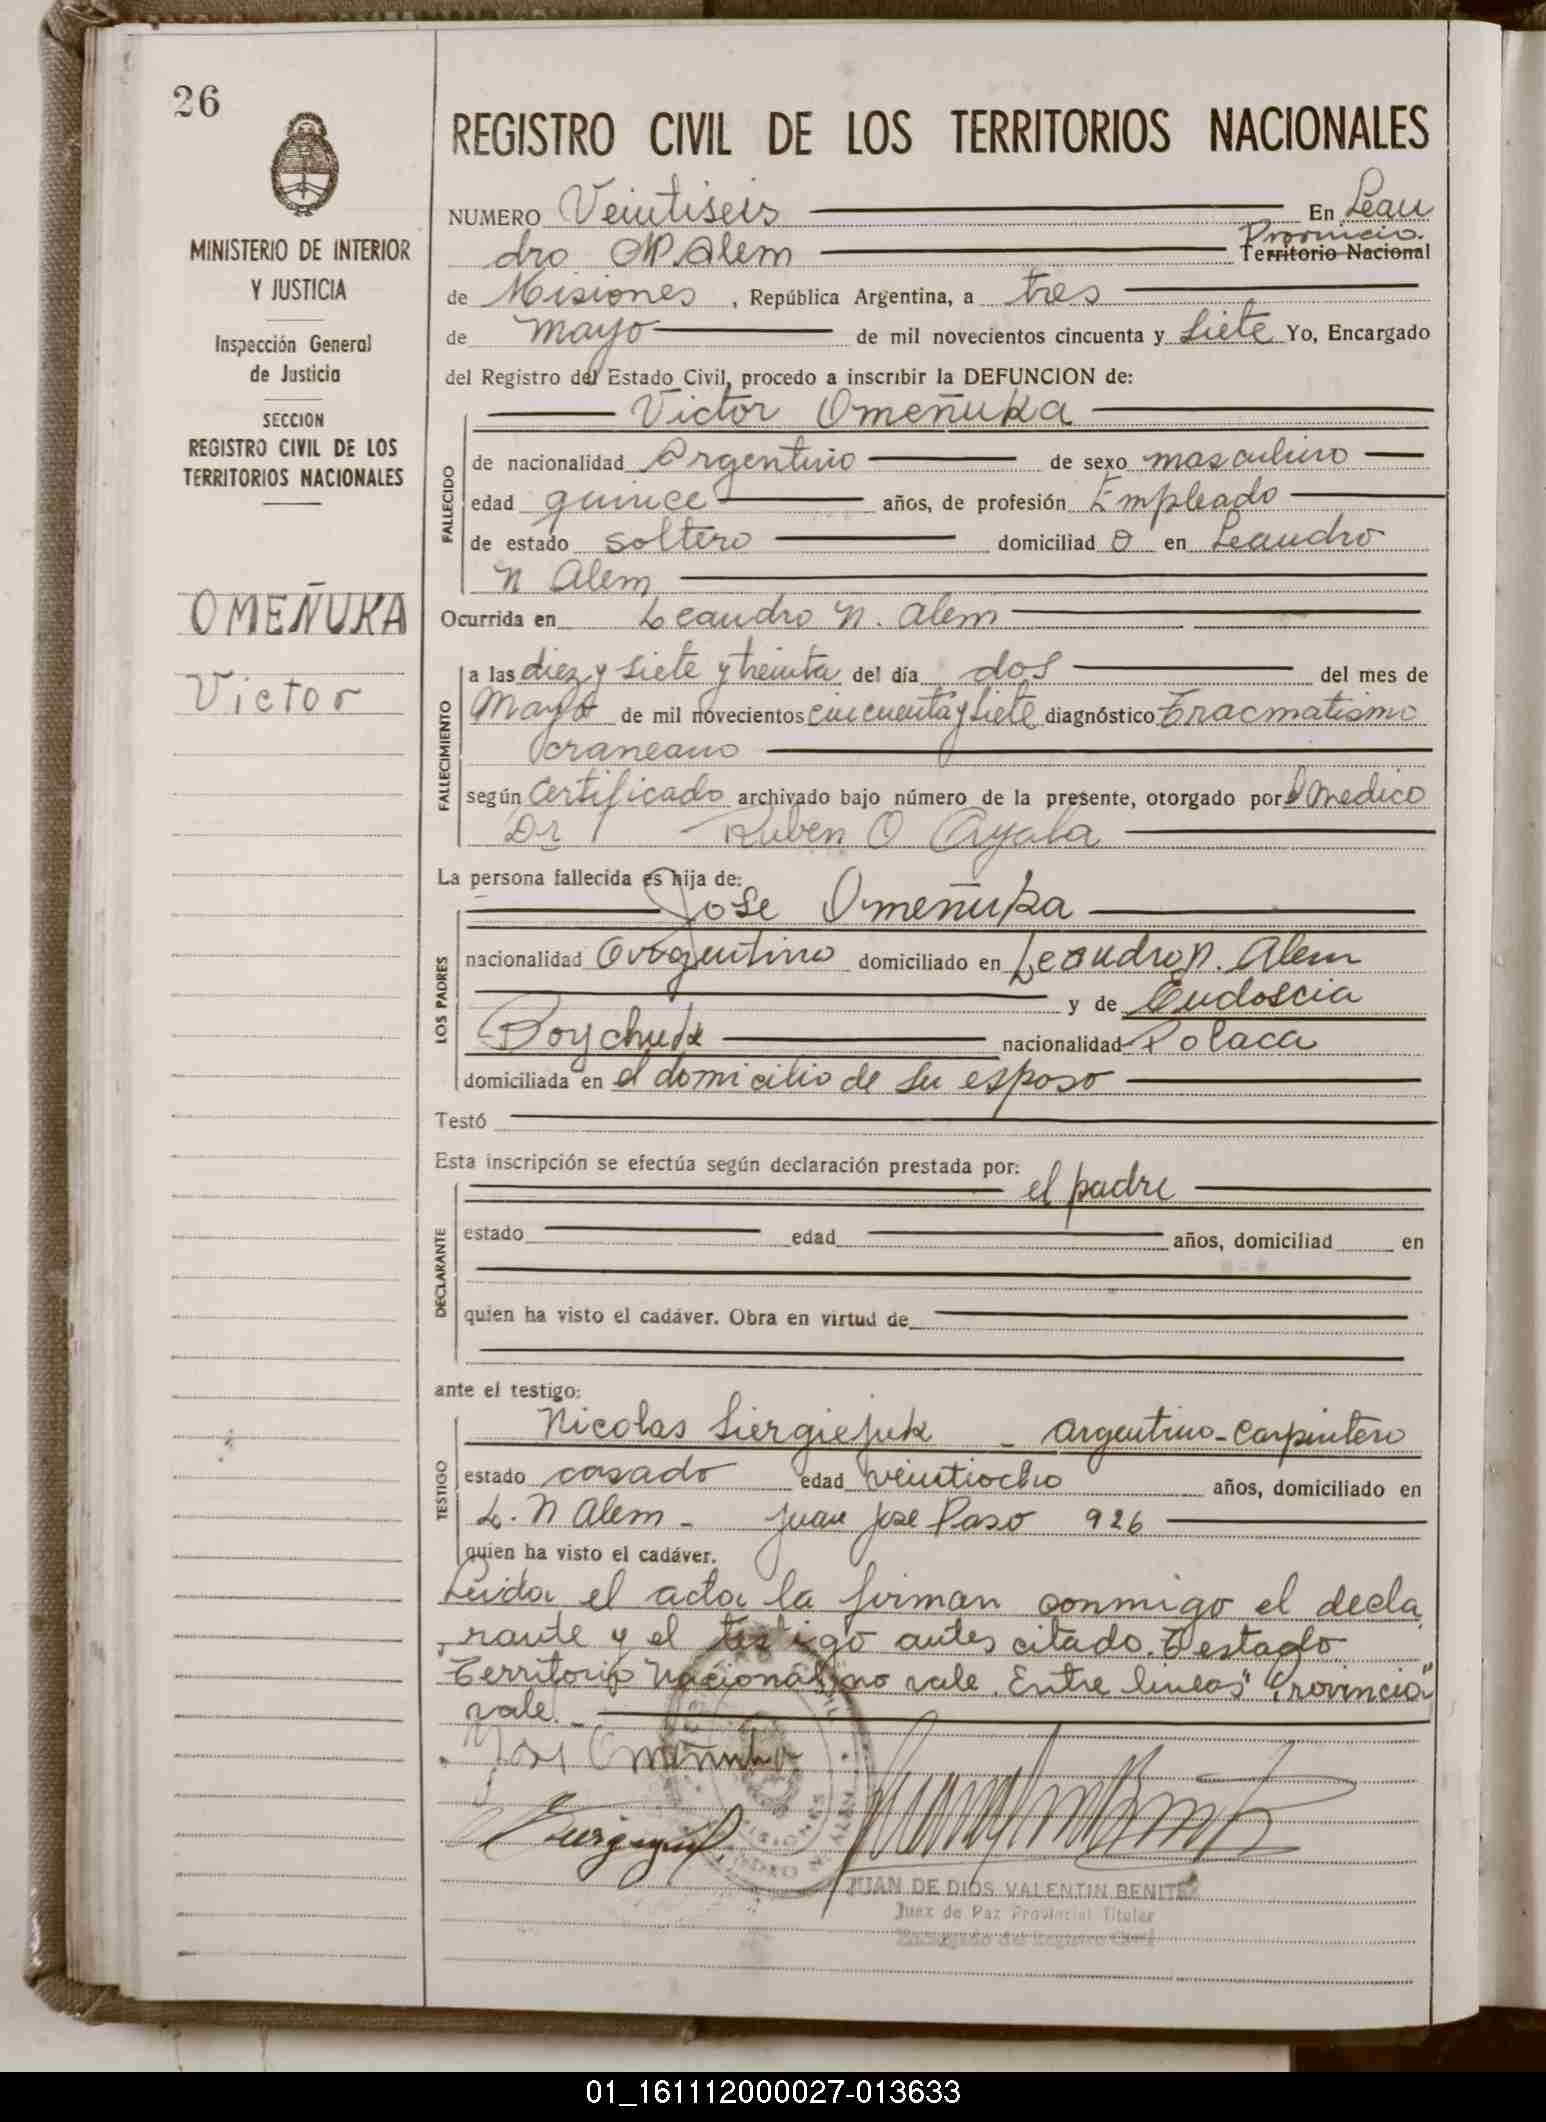 26
MINISTERIO DE INTERIOR
Y JUSTICIA
Inspección General
de Justicia
SECCION
REGISTRO CIVIL DE LOS
TERRITORIOS NACIONALES
OMEÑUKA
Victor
REGISTRO CIVIL DE LOS TERRITORIOS NACIONALES
NUMERO Veintiseis En Lean
dro N. Alem Provincia
Territorio Nacional
de Misiones, República Argentina, a tres
de mayo de mil novecientos cincuenta y siete Yo, Encargado
del Registro del Estado Civil, procedo a inscribir la DEFUNCION de:
Victor Omeñuka
FALLECIDO
de nacionalidad Argentino de sexo masculino
edad quince años, de profesión Empleado
de estado soltero domiciliad o en Leandro
N Alem
Ocurrida en Leandro N. Alem
FALLECIMIENTO
a las diez y siete y treinta del día dos del mes de
Mayo de mil novecientos cincuenta y siete diagnóstico Tracmatismo
craneano
según Certificado archivado bajo número de la presente, otorgado por el medico
Dr Ruben O Ayala
La persona fallecida es hija de:
Jose Omeñuka
LOS PADRES
nacionalidad Argentino domiciliado en Leandro N. Alem
y de Eudoscia
Boychuk nacionalidad Polaca
domiciliada en el domicilio de su esposo
Testó
Esta inscripción se efectúa según declaración prestada por:
el padre
DECLARANTE
estado edad años, domiciliad en
quien ha visto el cadáver. Obra en virtud de
ante el testigo:
TESTIGO
Nicolas Siergiejuk - argentino - Carpintero
estado casado edad veintiocho años, domiciliado en
L. N Alem - Juan Jose Paso 926
quien ha visto el cadáver.
Leida el acta la firman conmigo el decla
rante y el testigo antes citado. Testado
Territorio Nacional, no vale. Entre lineas "Provincia"
vale. -
Jose Omeñuka
MISIONES
JUAN DE DIOS VALENTIN BENITEZ
Juez de Paz Provincial Titular
Encargado del Registro Civil
01_161112000027-013633